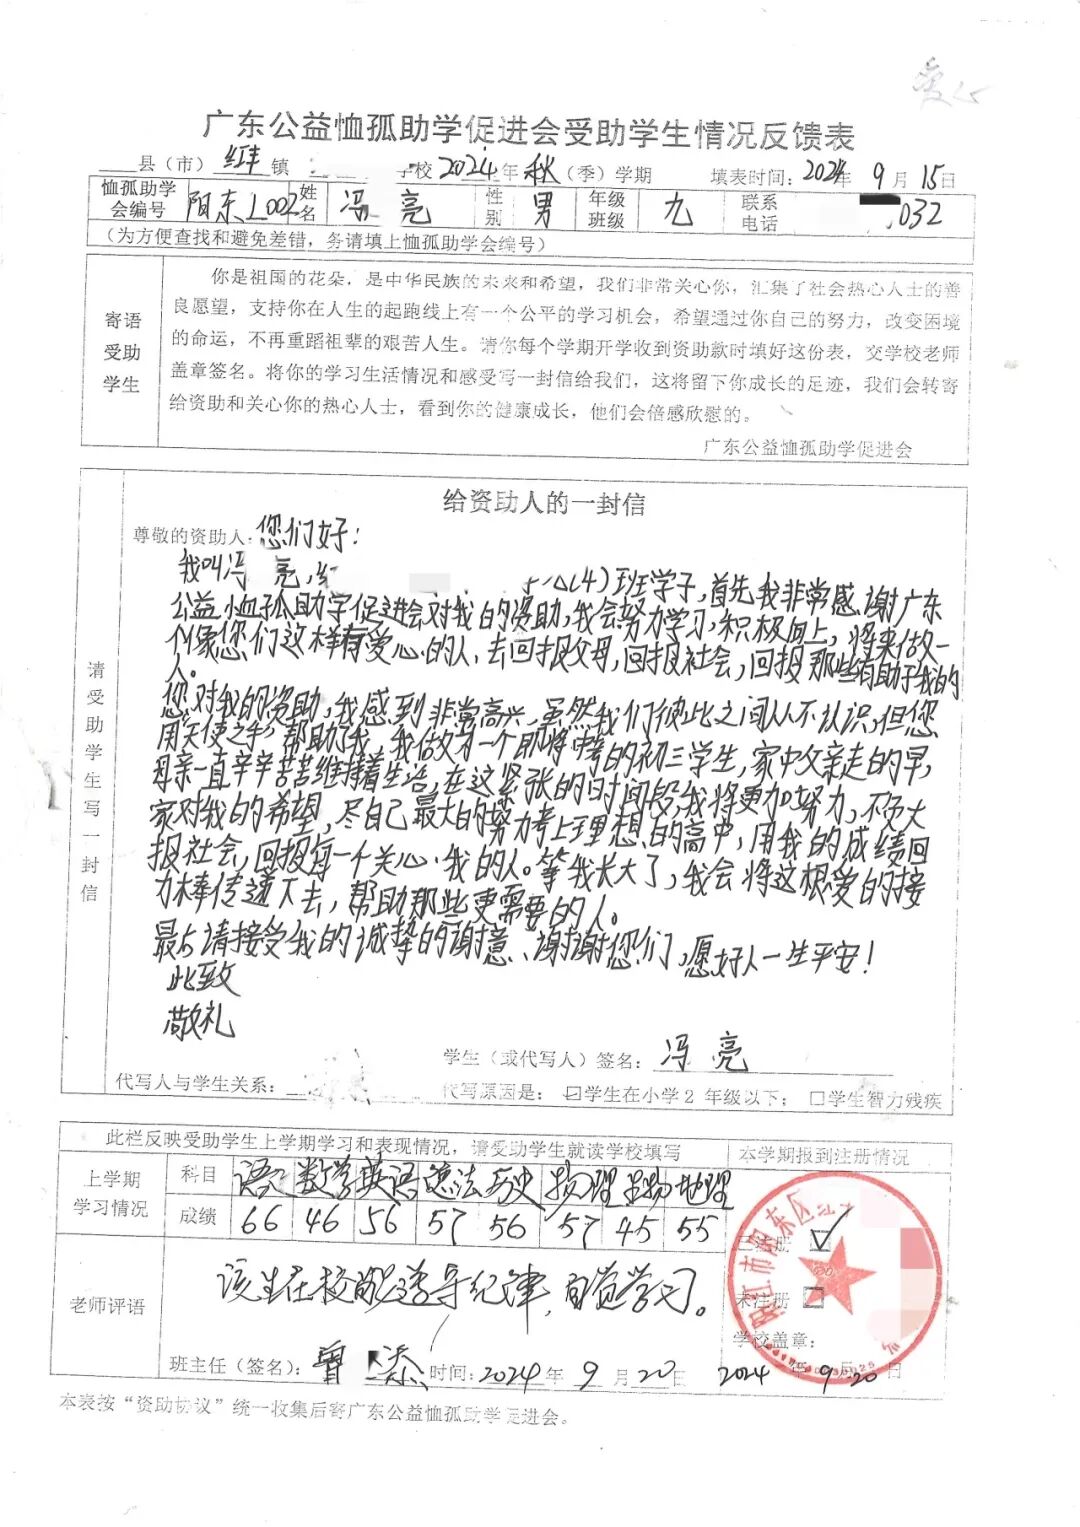 爱心
广东公益恤孤助学促进会受助学生情况反馈表
县（市）红丰镇 学校2024年秋（季）学期 填表时间：2024年9月15日
恤孤助学会编号 阳东L002 姓名 冯 亮 性别 男 年级班级 九 联系电话 032
（为方便查找和避免差错，务请填上恤孤助学会编号）
寄语受助学生
你是祖国的花朵，是中华民族的未来和希望，我们非常关心你，汇集了社会热心人士的善
良愿望，支持你在人生的起跑线上有一个公平的学习机会，希望通过你自己的努力，改变困境
的命运，不再重蹈祖辈的艰苦人生。请你每个学期开学收到资助款时填好这份表，交学校老师
盖章签名。将你的学习生活情况和感受写一封信给我们，这将留下你成长的足迹，我们会转寄
给资助和关心你的热心人士，看到你的健康成长，他们会倍感欣慰的。
广东公益恤孤助学促进会
请受助学生写一封信
给资助人的一封信
尊敬的资助人：您们好：
我叫冯 亮， (4)班学子，首先我非常感谢广东
公益恤孤助学促进会对我的资助，我会努力学习，积极向上，将来做一
个像您们这样有爱心的人，去回报父母，回报社会，回报那些有助于我的
人。
您对我的资助，我感到非常高兴，虽然我们彼此之间从不认识，但您
用天使之手，帮助了我，我做为一个即将中考的初三学生，家中父亲走的早，
母亲一直辛辛苦苦维持着生活，在这紧张的日时间段，我将更加努力，不负大
家对我的希望，尽自己最大的努力考上理想的高中，用我的成绩回
报社会，回报每一个关心我的人。等我长大了，我会将这根爱的接
力棒传递下去，帮助那些更需要的人。
最后请接受我的诚挚的谢意、谢谢您们，愿好人一生平安！
此致
敬礼
学生（或代写人）签名：冯 亮
代写人与学生关系： 代写原因是：☑学生在小学2 年级以下；□学生智力残疾
此栏反映受助学生上学期学习和表现情况，请受助学生就读学校填写 本学期报到注册情况
上学期学习情况 科目 语文 数学 英语 道法 历史 物理 生物 地理
成绩 66 46 56 57 56 57 45 55
已注册 ☑
未注册 □
学校盖章：
阳江市阳东区红
老师评语 该生在校能遵守纪律，自觉学习。
班主任（签名）：曾 添 时间：2024年9月20日 2024年9月20日
本表按“资助协议”统一收集后寄广东公益恤孤助学促进会。